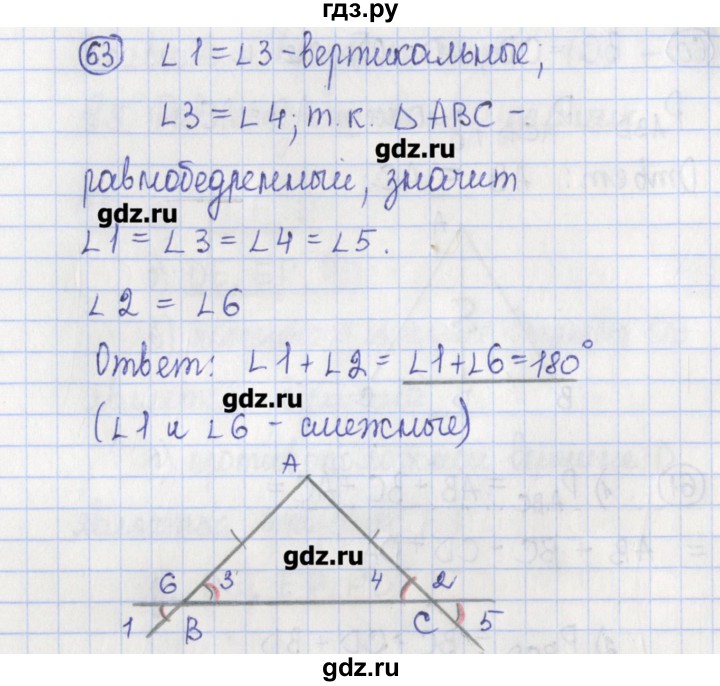 гдз.ру
63 ∠1 = ∠3 - вертикальные;
∠3 = ∠4; т.к. △ABC -
gdz.ru
равнобедренный, значит
gdz.ru
∠1 = ∠3 = ∠4 = ∠5.
∠2 = ∠6
Ответ: ∠1 + ∠2 = ∠1 + ∠6 = 180°
gdz.ru
(∠1 и ∠6 - смежные)
A
gdz.ru
6 3 4 2
1 B C 5
gdz.ru